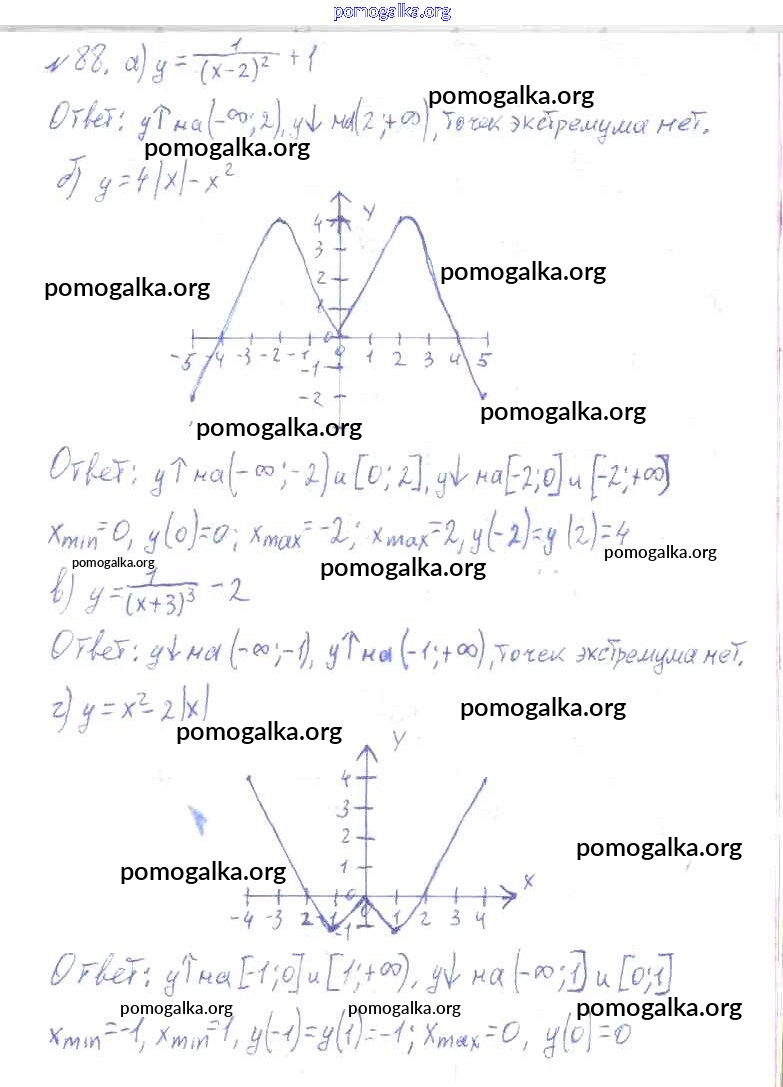 pomogalka.org
№88. а) y = 1/(x-2)² + 1
pomogalka.org
Ответ: y↑ на (-∞; 2), y↓ на (2; +∞), точек экстремума нет.
pomogalka.org
б) y = 4|x| - x²
y
4
3
2
1
0
pomogalka.org
pomogalka.org
-5 -4 -3 -2 -1 0 1 2 3 4 5
-1
-2
pomogalka.org
pomogalka.org
Ответ: y↑ на (-∞; -2) и [0; 2], y↓ на [-2; 0] и [-2; +∞)
x min = 0, y(0) = 0; x max = -2; x max = 2, y(-2) = y(2) = 4
pomogalka.org
pomogalka.org
pomogalka.org
в) y = 1/(x+3)³ - 2
Ответ: y↓ на (-∞; -1), y↑ на (-1; +∞), точек экстремума нет.
г) y = x² - 2|x|
pomogalka.org
pomogalka.org
y
4
3
2
1
0
pomogalka.org
pomogalka.org
x
-4 -3 2 -1 0 1 2 3 4
-1
Ответ: y↑ на [-1; 0] и [1; +∞), y↓ на (-∞; 1] и [0; 1]
pomogalka.org
pomogalka.org
pomogalka.org
x min = -1, x min = 1, y(-1) = y(1) = -1; x max = 0, y(0) = 0